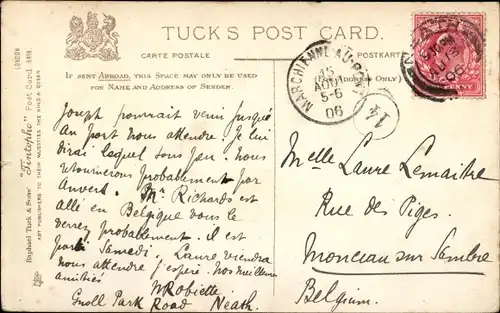 TUCK'S POST CARD.
CARTE POSTALE
POSTKARTE
IF SENT ABROAD, THIS SPACE MAY ONLY BE USED
FOR NAME AND ADDRESS OF SENDER.
(FOR ADDRESS ONLY)
Joseph pourrait venir jusqué
au port nous attendre. Je lui
dirai laquel sous peu. Nous
retournerons probablement par
Anvert. Mr Richards est
allé en Belgique vous le
verrez probablement. il est
parti Samedi. Laure viendra
nous attendre j'espère. Nos meilleures
amitiés
Robiette
Gnoll Park Road Neath.
Melle Laure Lemaitre
Rue des Piges.
Monceau sur Sambre
Belgium.
MARCHIENNE-AU-PONT
15
AOUT
5-6
06
14
PENNY
Raphael Tuck & Sons' "Photopho" Post Card
ART PUBLISHERS TO THEIR MAJESTIES THE KING & QUEEN
LONDON